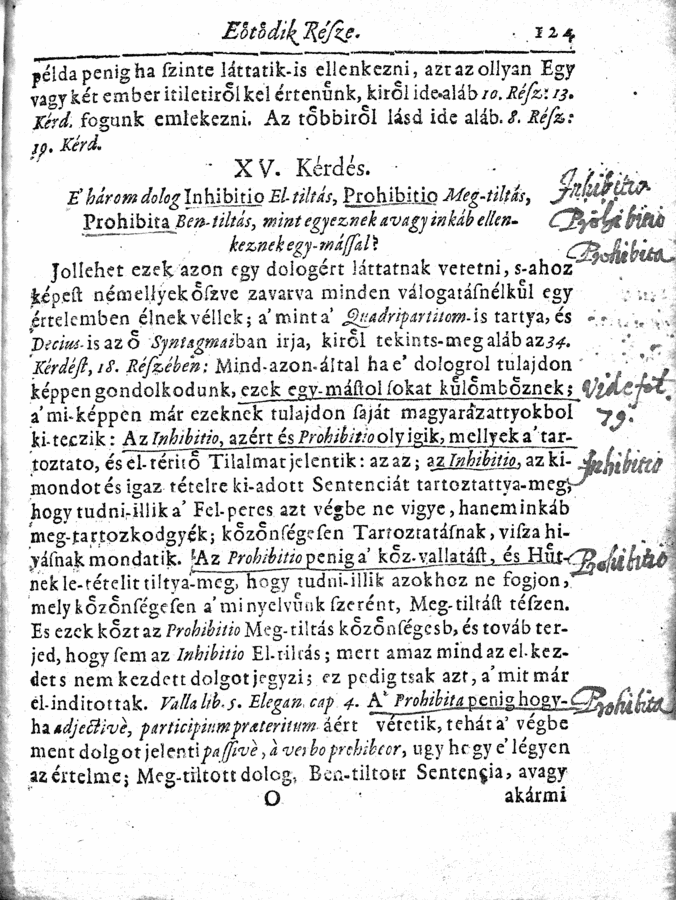 Eötödik Réſze. 124
példa penig ha ſzinte láttatik-is ellenkezni, azt az ollyan Egy
vagy két ember itiletiröl kel értenünk, kiröl ide-aláb 10. Réſz: 13.
Kérd. fogunk emlekezni. Az többiröl láſd ide aláb. 8. Réſz:
19. Kérd.
XV. Kérdés.
E' három dolog Inhibitio El-tiltás, Prohibitio Meg-tiltás,
Prohibita Ben-tiltás, mint egyeznek avagy inkáb ellen-
keznek egy-máſſal?
Jollehet ezek azon egy dologért láttatnak vetetni, s-ahoz
képeſt némellyek öſzve zavarva minden válogatáſnélkül egy
értelemben élnek véllek; a' mint a' Quadripartitom-is tartya, és
Decius-is az ö Syntagmaiban irja, kiröl tekints-meg aláb az 34.
Kérdéſt, 18. Réſzében: Mind-azon-által ha e' dologrol tulajdon
képpen gondolkodunk, ezek egy-máſtol ſokat külömböznek;
a' mi-képpen már ezeknek tulajdon ſaját magyarázattyokbol
ki-teczik: Az Inhibitio, azért és Prohibitio oly igik, mellyek a' tar-
toztato, és el-téritö Tilalmat jelentik: az az; az Inhibitio, az ki-
mondot és igaz tételre ki-adott Sentenciát tartoztattya-meg,
hogy tudni-illik a' Fel-peres azt végbe ne vigye, hanem inkáb
meg-tartozkodgyék; közönſégeſen Tartoztatáſnak, viſza hi-
váſnak mondatik. Az Prohibitio penig a' köz-vallatáſt, és Hüt-
nek le-tételit tiltya-meg, hogy tudni-illik azokhoz ne fogjon,
mely közönſégeſen a' mi nyelvünk ſzerént, Meg-tiltáſt téſzen.
Es ezek közt az Prohibitio Meg-tiltás közönſégesb, és továb ter-
jed, hogy ſem az Inhibitio El-tiltás; mert amaz mind az el-kez-
dets nem kezdett dolgot jegyzi; ez pedig tsak azt, a' mit már
el-inditottak. Valla lib. 5. Elegan. cap 4. A' Prohibita penig hogy-
ha adjectivè, participium prateritum áért vétetik, tehát a' végbe
ment dolgot jelenti paſſivè, à verbo prohibeor, ugy hogy e' légyen
az értelme; Meg-tiltott dolog, Ben-tiltott Sentencia, avagy
O akármi
Inhibitio
Prohibitio
Prohibita
Vide fol.
79.
Inhibitio
Prohibitio
Prohibita